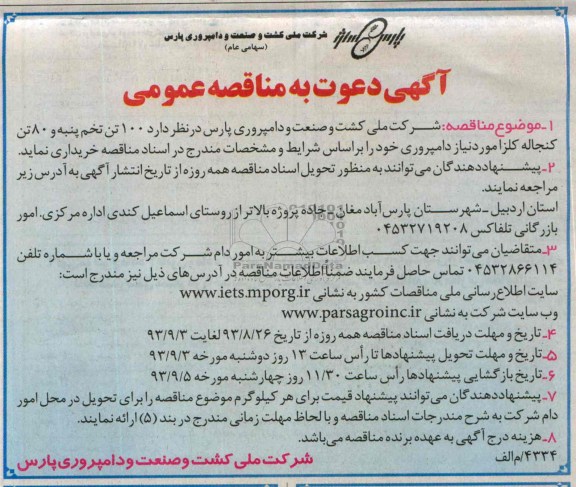 پارس
شرکت ملی کشت و صنعت و دامپروری پارس
(سهامی عام)
آگهی دعوت به مناقصه عمومی
۱ـ موضوع مناقصه: شرکت ملی کشت و صنعت و دامپروری پارس در نظر دارد ۱۰۰ تن تخم پنبه و ۸۰ تن
کنجاله کلزا مورد نیاز دامپروری خود را براساس شرایط و مشخصات مندرج در اسناد مناقصه خریداری نماید.
۲ـ پیشنهاد دهندگان می‌توانند به منظور تحویل اسناد مناقصه همه روزه از تاریخ انتشار آگهی به آدرس زیر
مراجعه نمایند.
استان اردبیل ـ شهرستان پارس‌آباد مغان ـ جاده پروژه بالاتر از روستای اسماعیل کندی اداره مرکزی، امور
بازرگانی تلفاکس ۰۴۵۳۲۷۱۹۲۰۸
۳ـ متقاضیان می‌توانند جهت کسب اطلاعات بیشتر به امور دام شرکت مراجعه و یا با شماره تلفن
۰۴۵۳۲۸۶۶۱۱۴ تماس حاصل فرمایند ضمناً اطلاعات مناقصه در آدرس‌های ذیل نیز مندرج است:
سایت اطلاع‌رسانی ملی مناقصات کشور به نشانی www.iets.mporg.ir
وب سایت شرکت به نشانی www.parsagroinc.ir
۴ـ تاریخ و مهلت دریافت اسناد مناقصه همه روزه از تاریخ ۹۳/۸/۲۶ لغایت ۹۳/۹/۳
۵ـ تاریخ و مهلت تحویل پیشنهادها تا رأس ساعت ۱۳ روز دوشنبه مورخه ۹۳/۹/۳
۶ـ تاریخ بازگشایی پیشنهادها رأس ساعت ۱۱/۳۰ روز چهارشنبه مورخه ۹۳/۹/۵
۷ـ پیشنهاد دهندگان می‌توانند پیشنهاد قیمت برای هر کیلوگرم موضوع مناقصه را برای تحویل در محل امور
دام شرکت به شرح مندرجات اسناد مناقصه و با لحاظ مهلت زمانی مندرج در بند (۵) ارائه نمایند.
۸ـ هزینه درج آگهی به عهده برنده مناقصه می‌باشد.
۴۳۳۴/م الف
شرکت ملی کشت و صنعت و دامپروری پارس